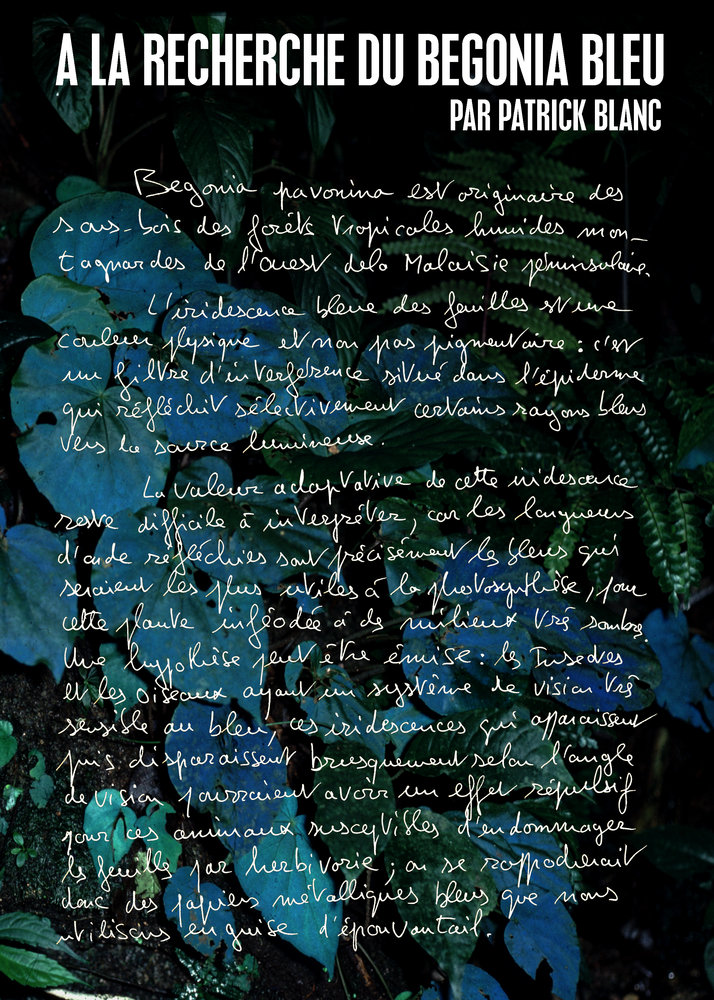 A LA RECHERCHE DU BEGONIA BLEU
PAR PATRICK BLANC
Begonia pavonina est originaire des
sous-bois des forêts tropicales humides mon-
tagnardes de l'ouest de la Malaisie péninsulaire.
L'iridescence bleue des feuilles est une
couleur physique et non pas pigmentaire : c'est
un filtre d'interférence situé dans l'épiderme
qui réfléchit sélectivement certains rayons bleus
vers la source lumineuse.
La valeur adaptative de cette iridescence
reste difficile à interpréter, car les longueurs
d'onde réfléchies sont précisément les bleus qui
seraient les plus utiles à la photosynthèse, pour
cette plante inféodée à des milieux très sombres.
Une hypothèse peut être émise : les Insectes
et les Oiseaux ayant un système de vision très
sensible au bleu, ces iridescences qui apparaissent
puis disparaissent brusquement selon l'angle
de vision pourraient avoir un effet répulsif
pour ces animaux susceptibles d'endommager
la feuille par herbivorie ; on se rapprocherait
donc des papiers métalliques bleus que nous
utilisons en guise d'épouvantail.